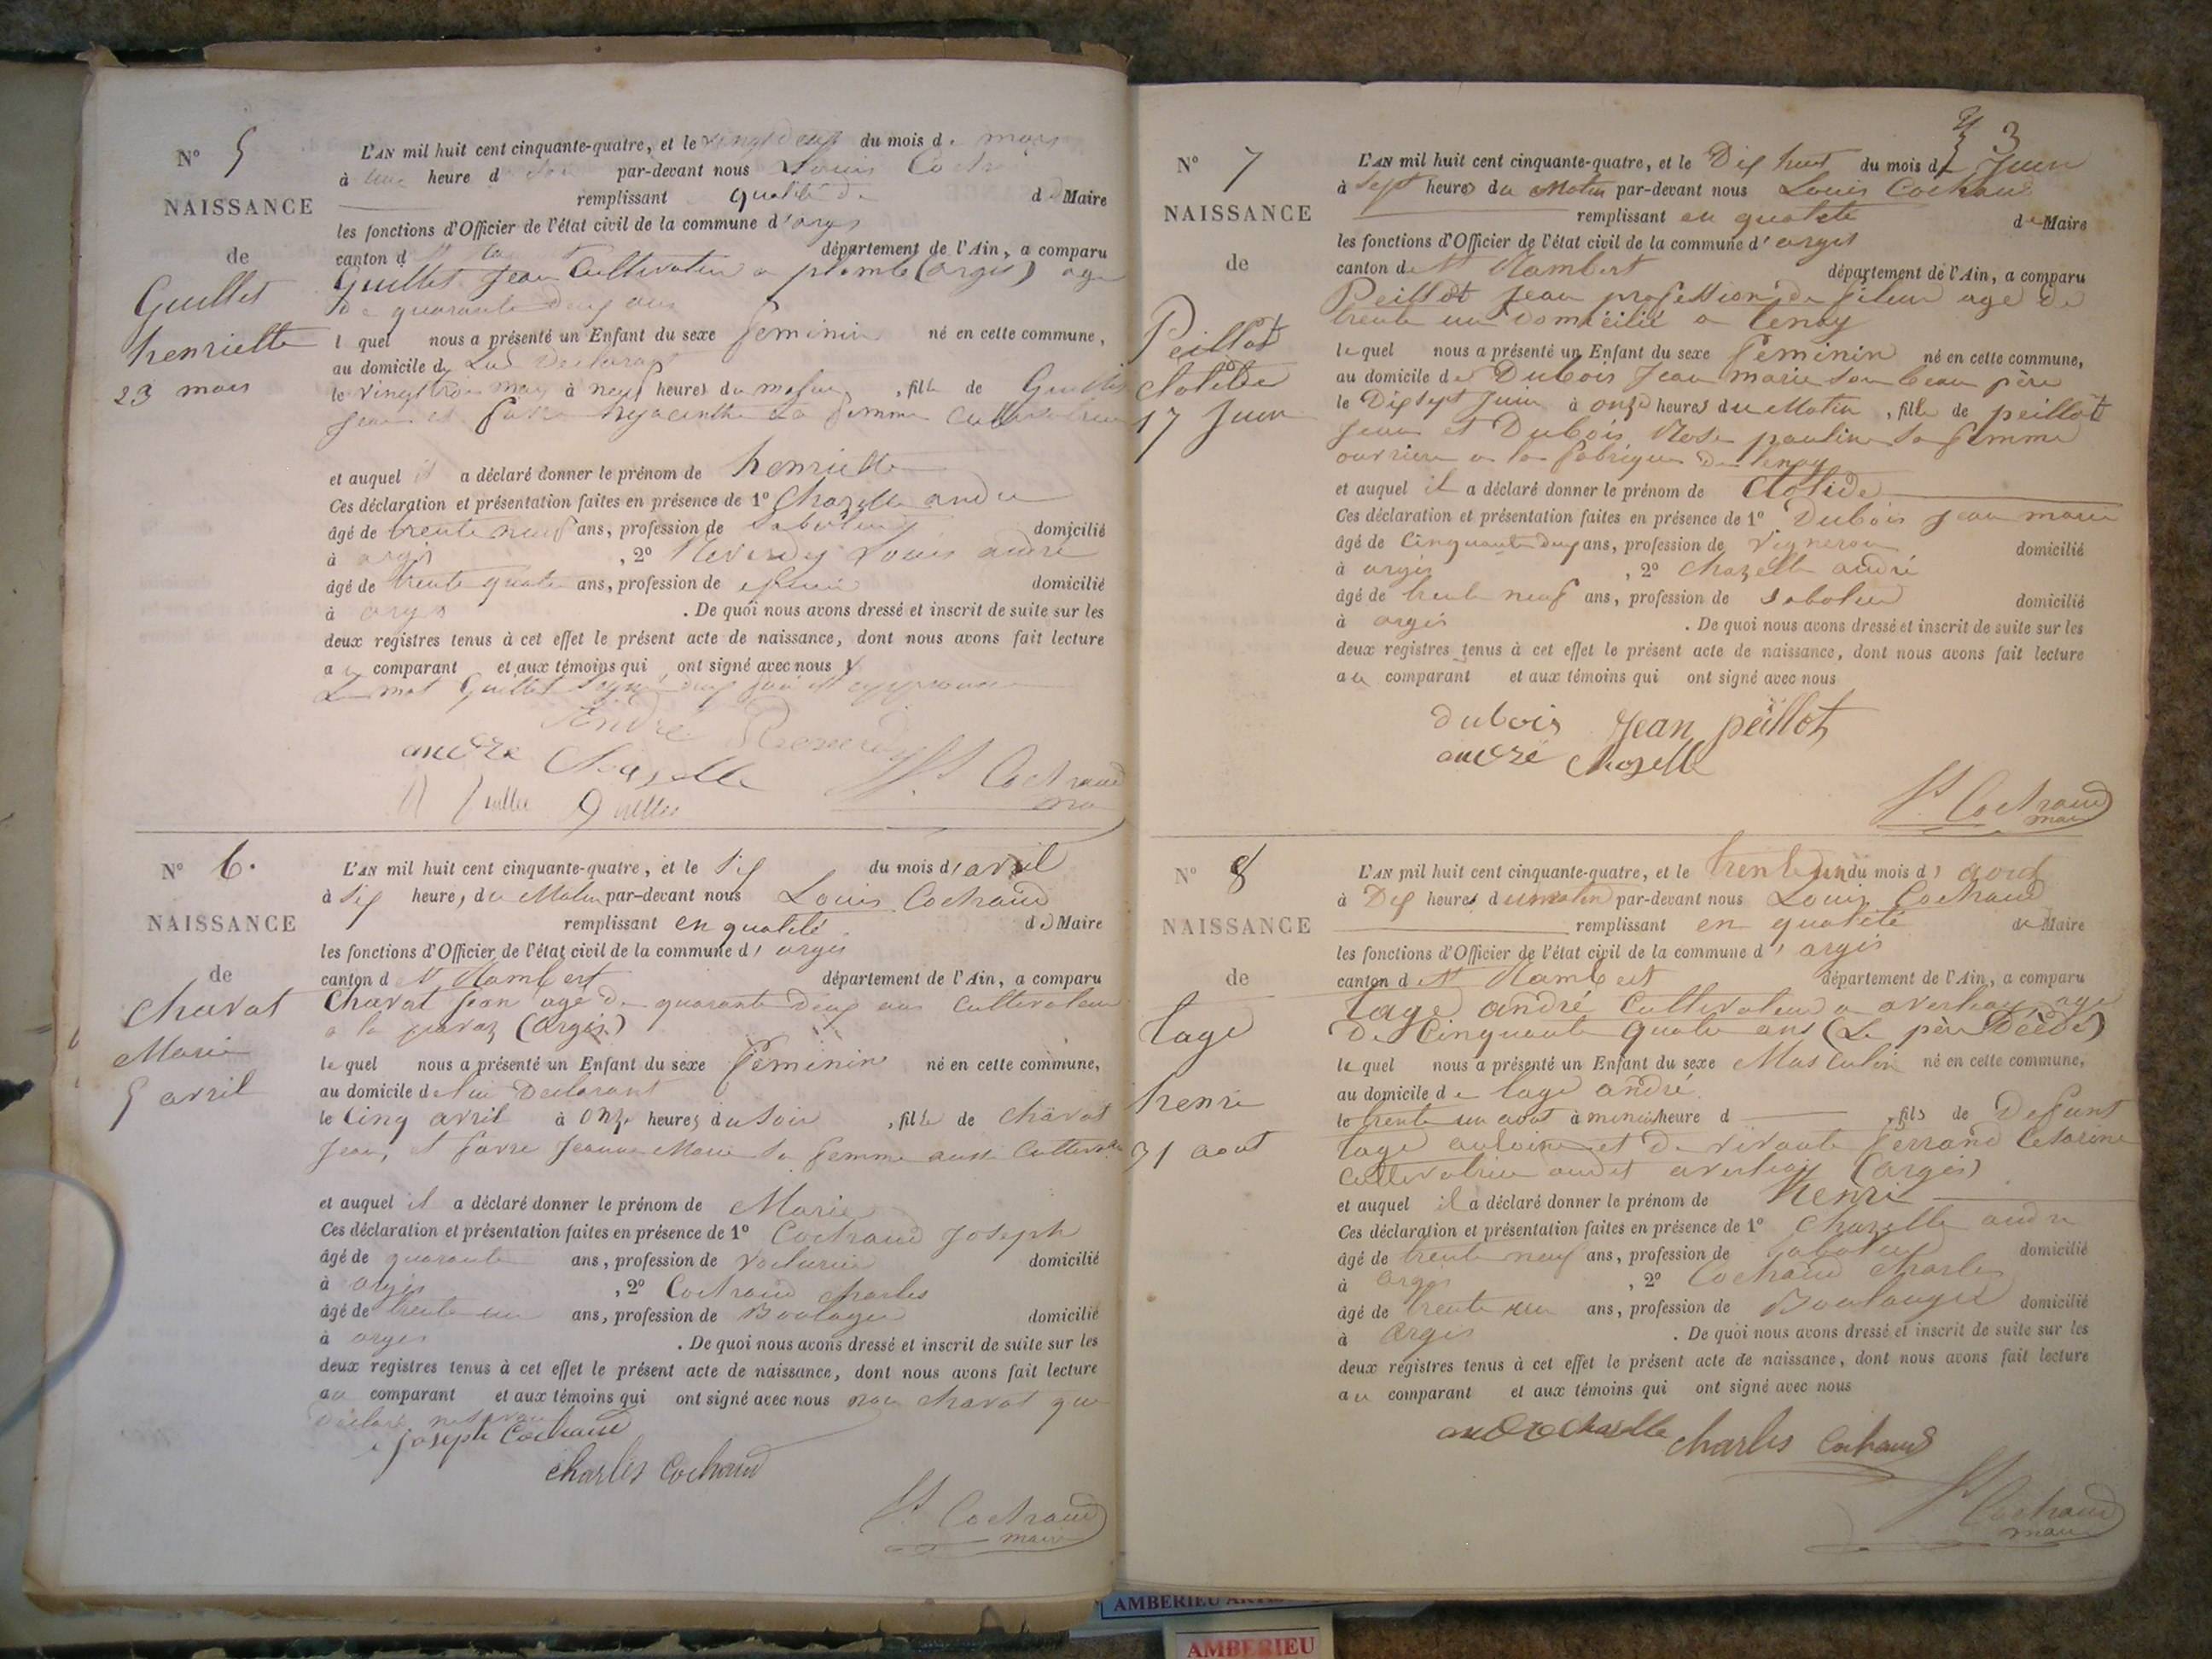 N° 5
NAISSANCE
de
Guillet
henriette
23 mars
L'AN mil huit cent cinquante-quatre, et le du mois d. mars
à une heure d par-devant nous Louis
remplissant qualité de de Maire
les fonctions d'Officier de l'état civil de la commune d'argis
canton d département de l'Ain, a comparu
Guillet Jean Cultivateur a plomb (argis) age
de quarante deux ans
l quel nous a présenté un Enfant du sexe feminin né en cette commune,
au domicile d
le vingt trois mars à neuf heures du matin, fille de Guillet
Jean et hyacinthe sa femme
et auquel il a déclaré donner le prénom de henriette
Ces déclaration et présentation faites en présence de 1° Chazelle andre
âgé de trente neuf ans, profession de saboteur domicilié
à argis , 2° Louis andré
âgé de trente quatre ans, profession de domicilié
à argis . De quoi nous avons dressé et inscrit de suite sur les
deux registres tenus à cet effet le présent acte de naissance, dont nous avons fait lecture
au comparant et aux témoins qui ont signé avec nous
Le mot Guillet
André
andré Chazelle St Cochaud
Guillet
N° 6.
NAISSANCE
de
Chavat
Marie
5 avril
L'AN mil huit cent cinquante-quatre, et le six du mois d'avril
à six heure, du Matin par-devant nous Louis Cochaud
remplissant en qualité de Maire
les fonctions d'Officier de l'état civil de la commune d'argis
canton d St Rambert département de l'Ain, a comparu
Chavat Jean agé de quarante deux ans Cultivateur
a la (argis)
le quel nous a présenté un Enfant du sexe feminin né en cette commune,
au domicile de lui Declarant
le Cinq avril à onze heures du soir , fille de Chavat
Jean, et favre Jeanne Marie sa femme aussi
et auquel il a déclaré donner le prénom de Marie
Ces déclaration et présentation faites en présence de 1° Cochaud Joseph
âgé de quarante ans, profession de voiturier domicilié
à argis , 2° Cochaud charles
âgé de trente un ans, profession de Boulager domicilié
à argis . De quoi nous avons dressé et inscrit de suite sur les
deux registres tenus à cet effet le présent acte de naissance, dont nous avons fait lecture
au comparant et aux témoins qui ont signé avec nous non chavat que
declaré
Joseph Cochaud
charles Cochaud
St Cochaud
maire
3
N° 7
NAISSANCE
de
Peillot
Clotilde
17 Juin
L'AN mil huit cent cinquante-quatre, et le Dix huit du mois de Juin
à sept heures du Matin par-devant nous Louis Cochaud
remplissant en qualité de Maire
les fonctions d'Officier de l'état civil de la commune d'argis
canton de St Rambert département de l'Ain, a comparu
Peillot Jean profession de fileur age de
trente un domicilié a tenay
le quel nous a présenté un Enfant du sexe feminin né en cette commune,
au domicile de Dubois Jean marie son beau père
le Dix sept Juin à onze heures du Matin , fille de peillot
Jean et Dubois Rose pauline sa femme
ouvriere a la fabrique de tenay
et auquel il a déclaré donner le prénom de Clotide
Ces déclaration et présentation faites en présence de 1° Dubois Jean marie
âgé de Cinquante deux ans, profession de vigneron domicilié
à argis , 2° chazelle andré
âgé de trente neuf ans, profession de saboteur domicilié
à argis . De quoi nous avons dressé et inscrit de suite sur les
deux registres tenus à cet effet le présent acte de naissance, dont nous avons fait lecture
au comparant et aux témoins qui ont signé avec nous
dubois Jean peillot
andré chazelle
St Cochaud
maire
N° 8
NAISSANCE
de
tage
henri
31 aout
L'AN mil huit cent cinquante-quatre, et le trente un du mois d'aout
à Dix heures du matin par-devant nous Louis Cochaud
remplissant en qualité de Maire
les fonctions d'Officier de l'état civil de la commune d'argis
canton de St Rambert département de l'Ain, a comparu
tage andré Cultivateur a age
De Cinquante quatre ans (Le père Décédé)
le quel nous a présenté un Enfant du sexe Masculin né en cette commune,
au domicile de tage andré
le trente un aout à heure d , fils de Defunt
tage antoine et de vivante ferrand Cesarine
Cultivatrice audit (argis)
et auquel il a déclaré donner le prénom de henri
Ces déclaration et présentation faites en présence de 1° chazelle andre
âgé de trente neuf ans, profession de saboteur domicilié
à argis , 2° Cochaud charles
âgé de trente un ans, profession de Boulanger domicilié
à argis . De quoi nous avons dressé et inscrit de suite sur les
deux registres tenus à cet effet le présent acte de naissance, dont nous avons fait lecture
au comparant et aux témoins qui ont signé avec nous
andré chazelle charles Cochaud
St Cochaud
maire
AMBERIEU
AMBERIEU